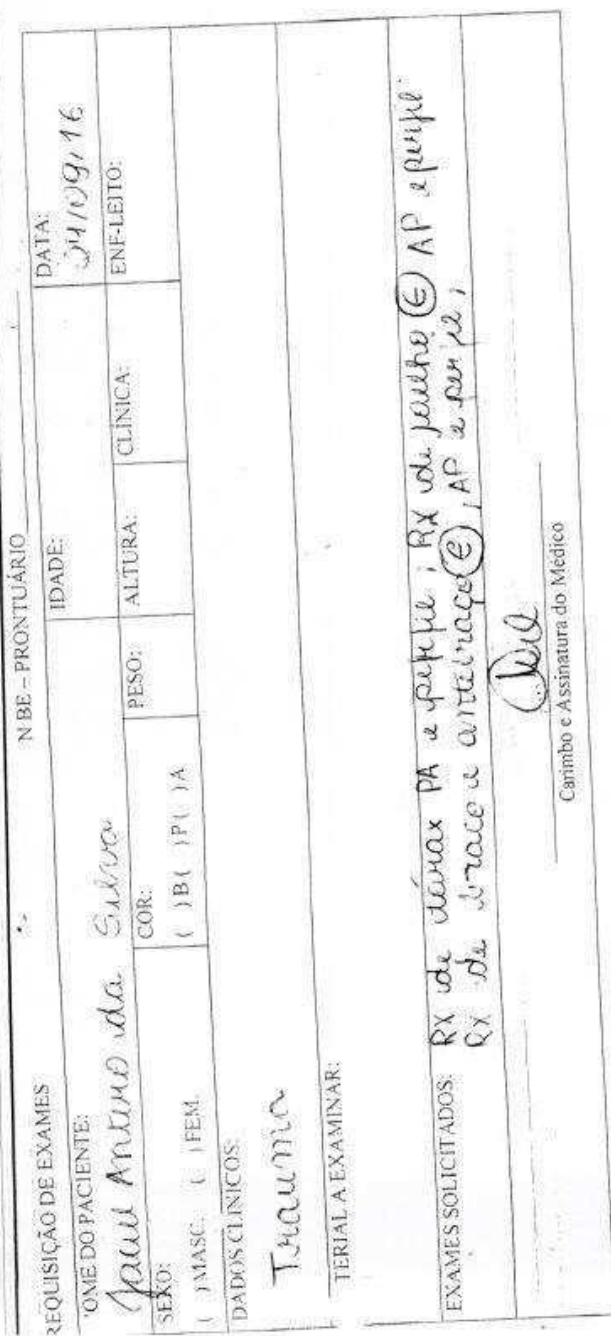 REQUISIÇÃO DE EXAMES N BE – PRONTUÁRIO
OME DO PACIENTE: IDADE: DATA:
Antero da Silva 04/09/16
SEXO: COR: PESO: ALTURA: CLÍNICA: ENF-LEITO:
( ) MASC. ( ) FEM. ( ) B ( ) P ( ) A
DADOS CLÍNICOS:
Trauma
TERIAL A EXAMINAR:
EXAMES SOLICITADOS: RX de tórax PA e perfil ; RX de joelho (E) AP e perfil
RX de braço e antebraço (E) , AP e perfil ,
Carimbo e Assinatura do Médico